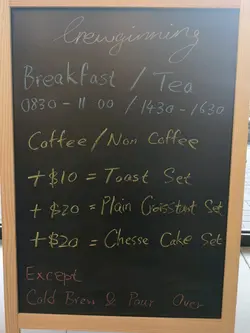 Crewginning
Breakfast / Tea
0830 - 11 00 / 1430 - 1630
Coffee / Non Coffee
+ $10 = Toast Set
+ $20 = Plain Croissant Set
+ $20 = Chesse Cake Set
Except
Cold Brew & Pour Over